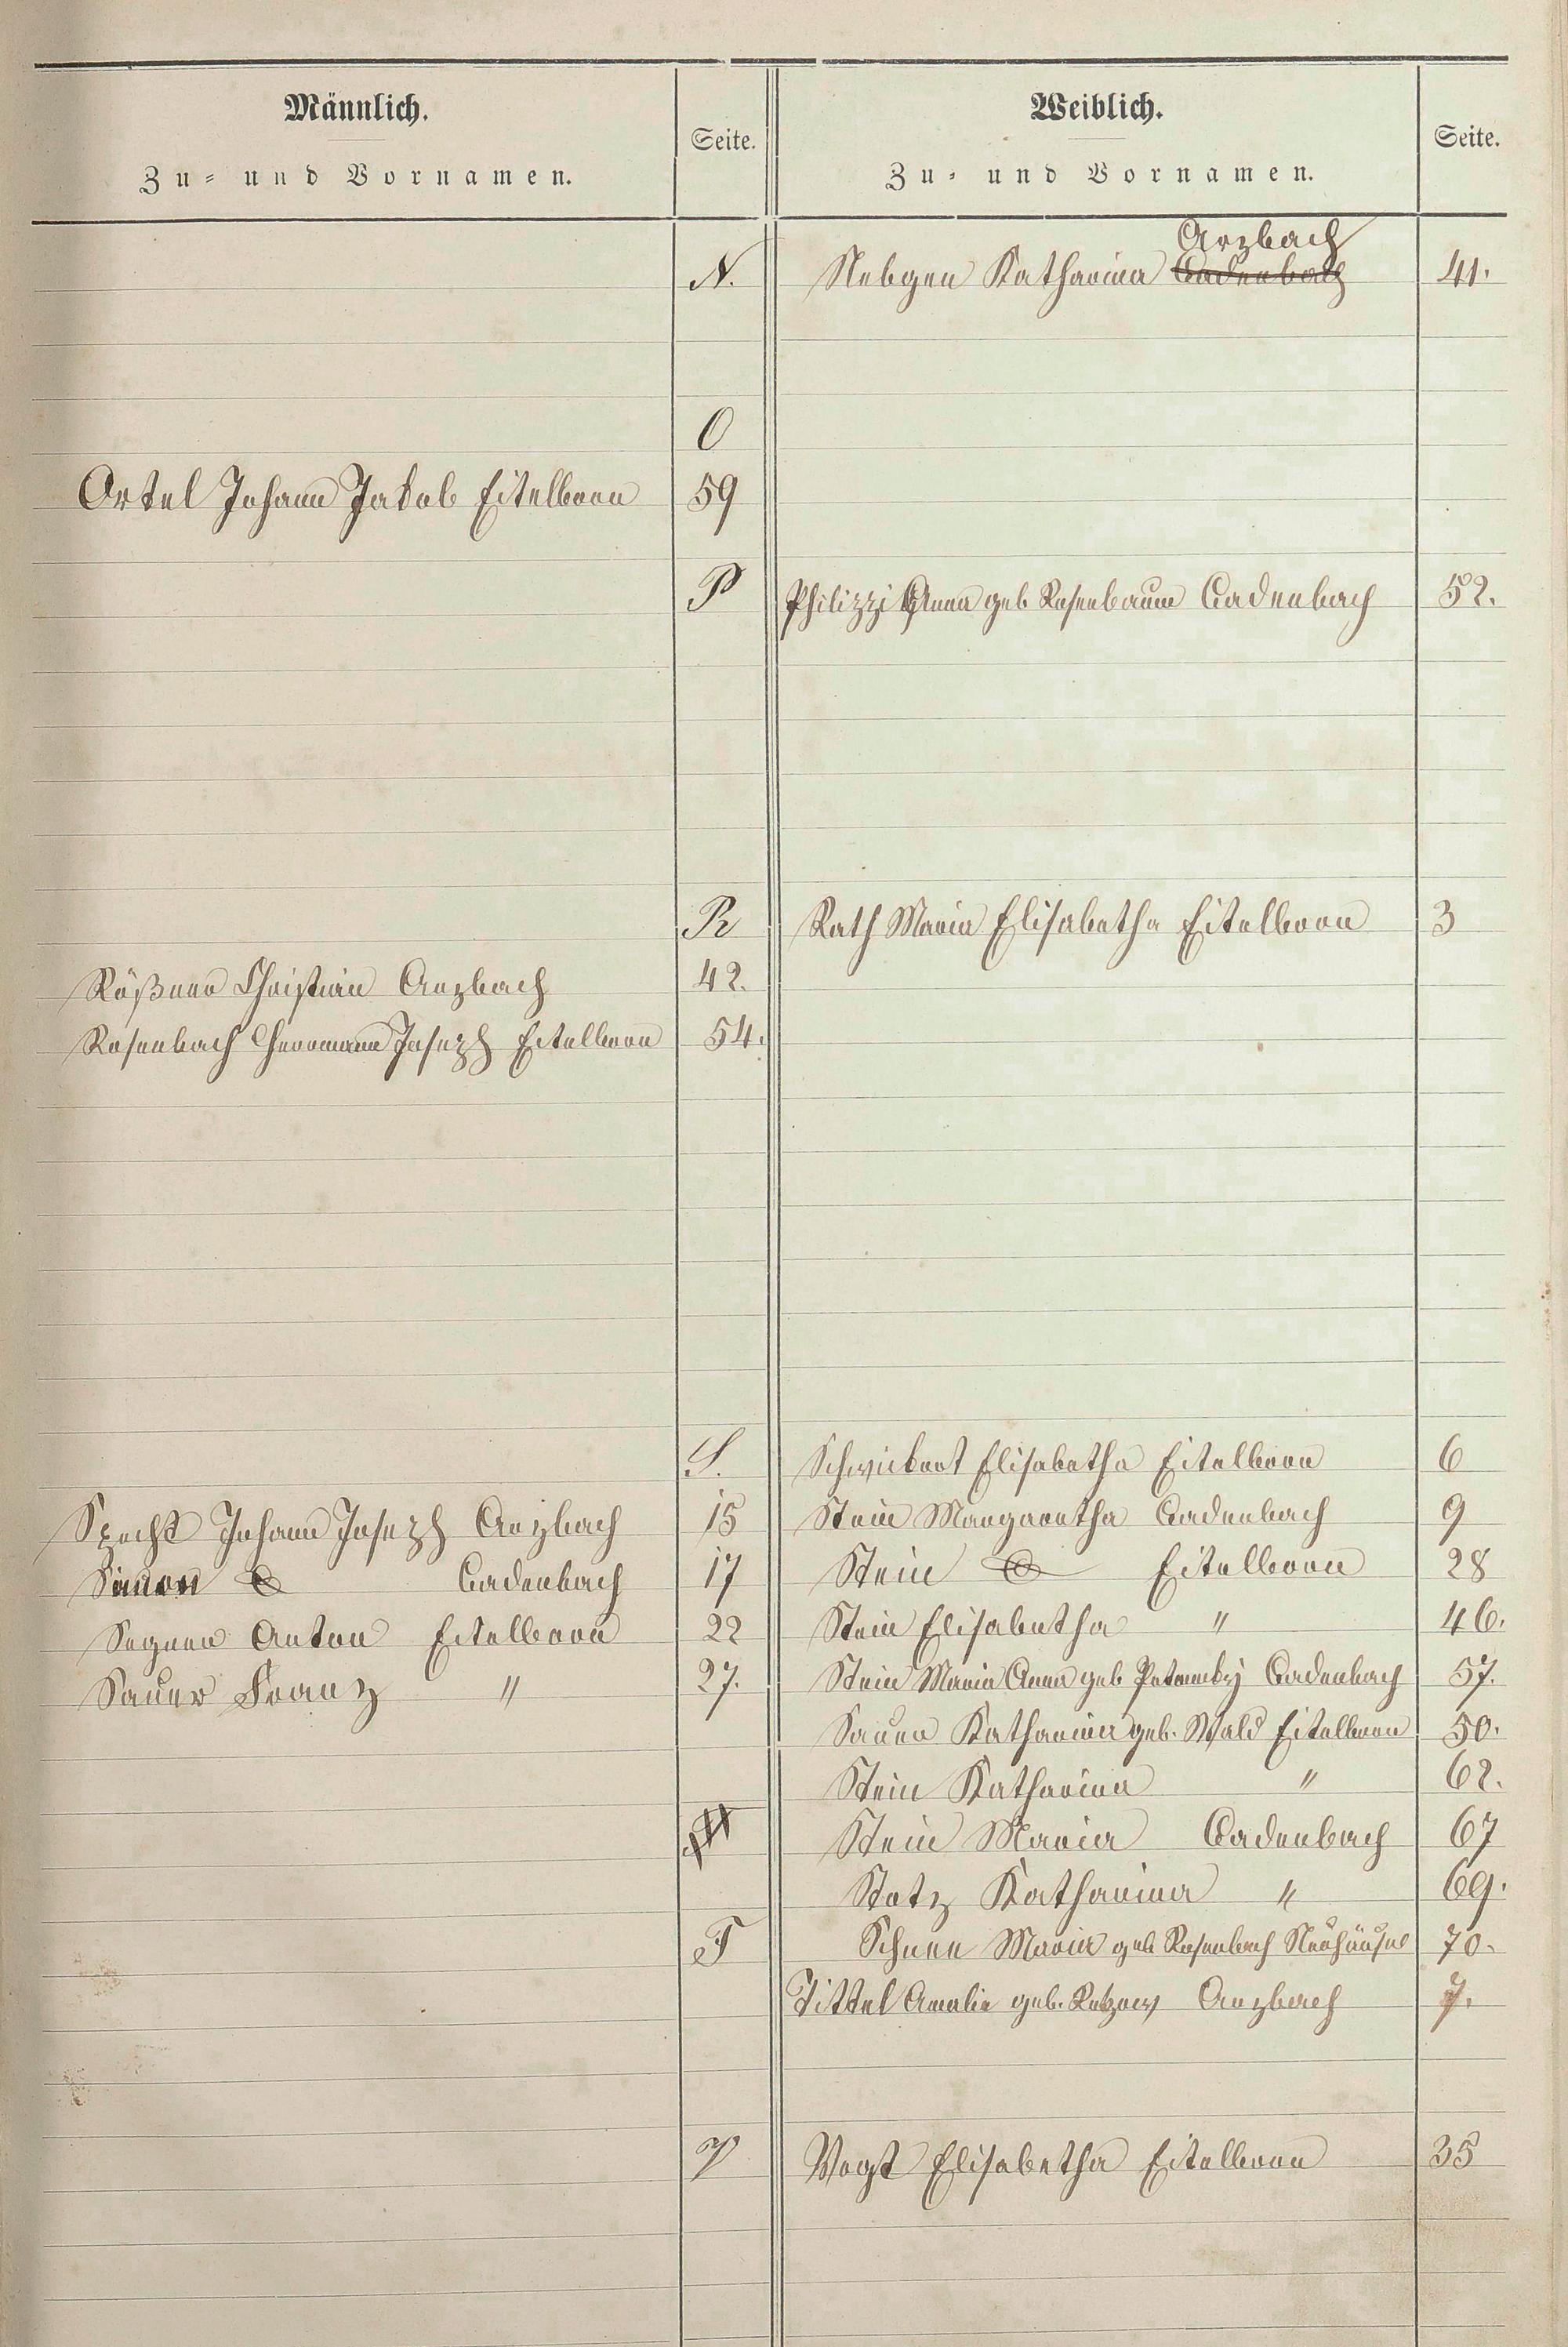 Männlich.
Zu- und Vornamen.
Seite.
Weiblich.
Zu- und Vornamen.
Seite.
Arzbach
N. Nebgen Katharina Cadenbach 41.
O
Ortel Johann Jakob Eitelborn 59
P Philippi Anna geb Rosenbaum Cadenbach 52.
R Rath Maria Elisabetha Eitelborn 3
Rößner Christian Arzbach 42.
Rosenbach Herrmann Joseph Eitelborn 54.
S. Schwickert Elisabetha Eitelborn 6
Specht Johann Joseph Arzbach 15 Stein Margaretha Cadenbach 9
Simon Cadenbach 17 Stein Eitelborn 28
Segner Anton Eitelborn 22 Stein Elisabetha " 46.
Sauer Franz " 27. Stein Maria Anna geb Cadenbach 57.
Sauer Katharina geb. Wald Eitelborn 50.
Stein Katharina " 62.
Stein Maria Cadenbach 67
Stotz Katharina " 69.
T Schnee Maria geb Rosenbach Neuhäusel 70.
Tittel Amalie geb. Arzbach 7.
V Vogt Elisabetha Eitelborn 35